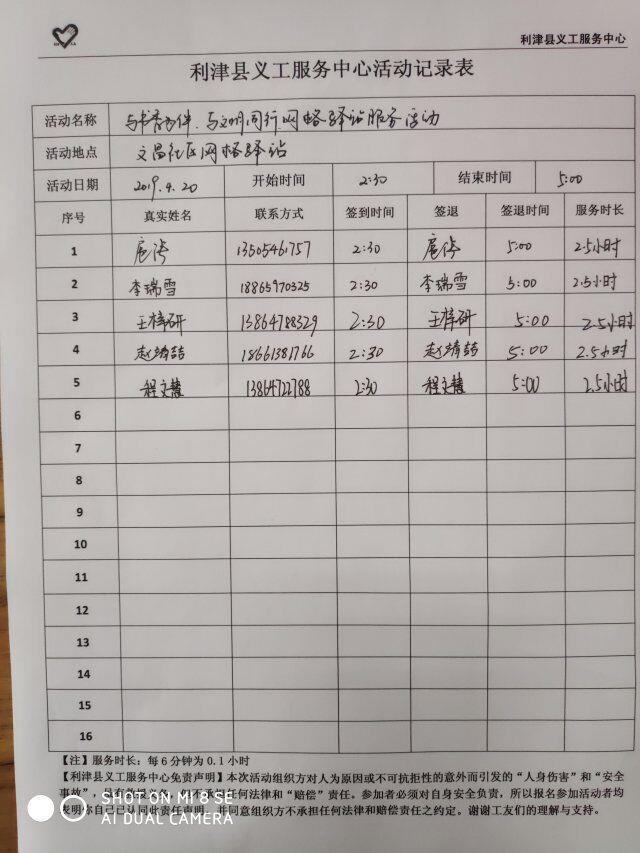 利津县义工服务中心
利津县义工服务中心活动记录表
活动名称 与书香为伴、与文明同行网格驿站服务活动
活动地点 文昌社区网格驿站
活动日期 2019.4.20 开始时间 2:30 结束时间 5:00
序号 真实姓名 联系方式 签到时间 签退 签退时间 服务时长
1 13505461757 2:30 5:00 2.5小时
2 李瑞雪 18865970325 2:30 李瑞雪 5:00 2.5小时
3 王梓研 13864788329 2:30 王梓研 5:00 2.5小时
4 18661381766 2:30 5:00 2.5小时
5 程文慧 13864722788 2:30 程文慧 5:00 2.5小时
6
7
8
9
10
11
12
13
14
15
16
【注】服务时长：每6分钟为0.1小时
【利津县义工服务中心免责声明】本次活动组织方对人为原因或不可抗拒性的意外而引发的“人身伤害”和“安全
事故”，但不承担任何法律和“赔偿”责任。参加者必须对自身安全负责，所以报名参加活动者均
表明你自己已认同此责任声明，并同意组织方不承担任何法律和赔偿责任之约定。谢谢工友们的理解与支持。
SHOT ON MI 8 SE
AI DUAL CAMERA